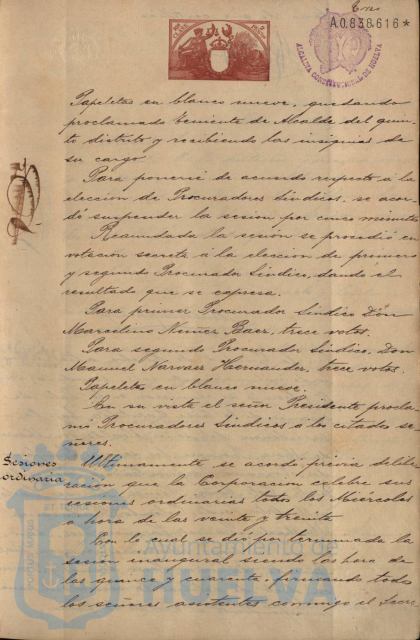 Tres
A.0.838.616*
ALCALDIA CONSTITUCIONAL DE HUELVA
Papeletas en blanco nueve, quedando
proclamado Teniente de Alcalde del quin-
to distrito y recibiendo las insignias de
su cargo
Para ponerse de acuerdo respecto á la
elección de Procuradores Síndicos, se acor-
dó suspender la sesion por cinco minutos
Reanudada la sesión se procedió en
votación secreta á la elección de primero
y segundo Procurador Síndico, dando el
resultado que se expresa.
Para primer Procurador Síndico Don
Marcelino Baer, trece votos.
Para segundo Procurador Síndico, Don
Manuel Narvaez Hernandez, trece votos.
Papeletas en blanco nueve.
En su vista el señor Presidente procla-
mó Procuradores Síndicos a los citados se-
ñores.
Sesiones
ordinarias
Ultimamente, se acordó previa delibe-
ración que la Corporación celebre sus
sesiones ordinarias todos los Miércoles
a hora de las veinte y treinta
Con lo cual se dió por terminada la
sesión inaugural siendo las hora de
las quince y cuarenta, firmando todos
los señores asistentes conmigo el Secre
Ayuntamiento de
HUELVA